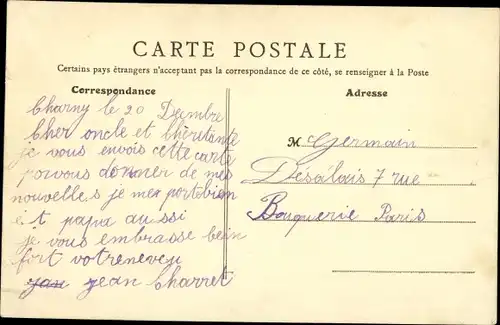 CARTE POSTALE
Certains pays étrangers n'acceptant pas la correspondance de ce côté, se renseigner à la Poste
Correspondance
Charny le 20 Décmbre
Cher oncle et chèretante
je vous envois cette carte
pourvous donner de mes
nouvelles je me portebien
et papa aussi
je vous embrasse bein
fort votreneveu
jean Charret
Adresse
M Germain
Désalais 7 rue
Bouquerie Paris